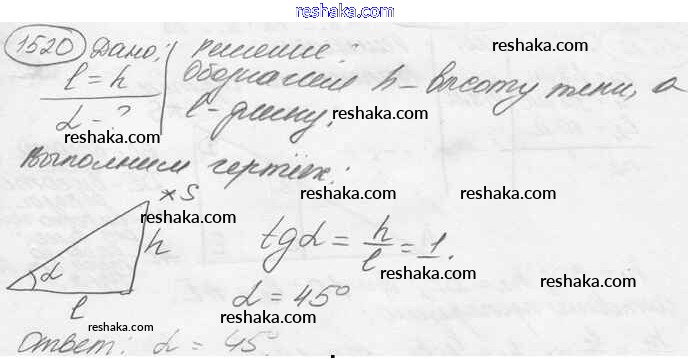 www.reshaka.com
1520 Дано: Решение:
l = h Обозначим h – высоту тени, а
reshaka.com
α - ? l – длину.
reshaka.com
reshaka.com
Выполним чертёж:
reshaka.com
reshaka.com
reshaka.com
*S
reshaka.com
h
tgα = h/l = 1.
α
reshaka.com
reshaka.com
l
α = 45°
reshaka.com
reshaka.com
Ответ: α = 45°
reshaka.com